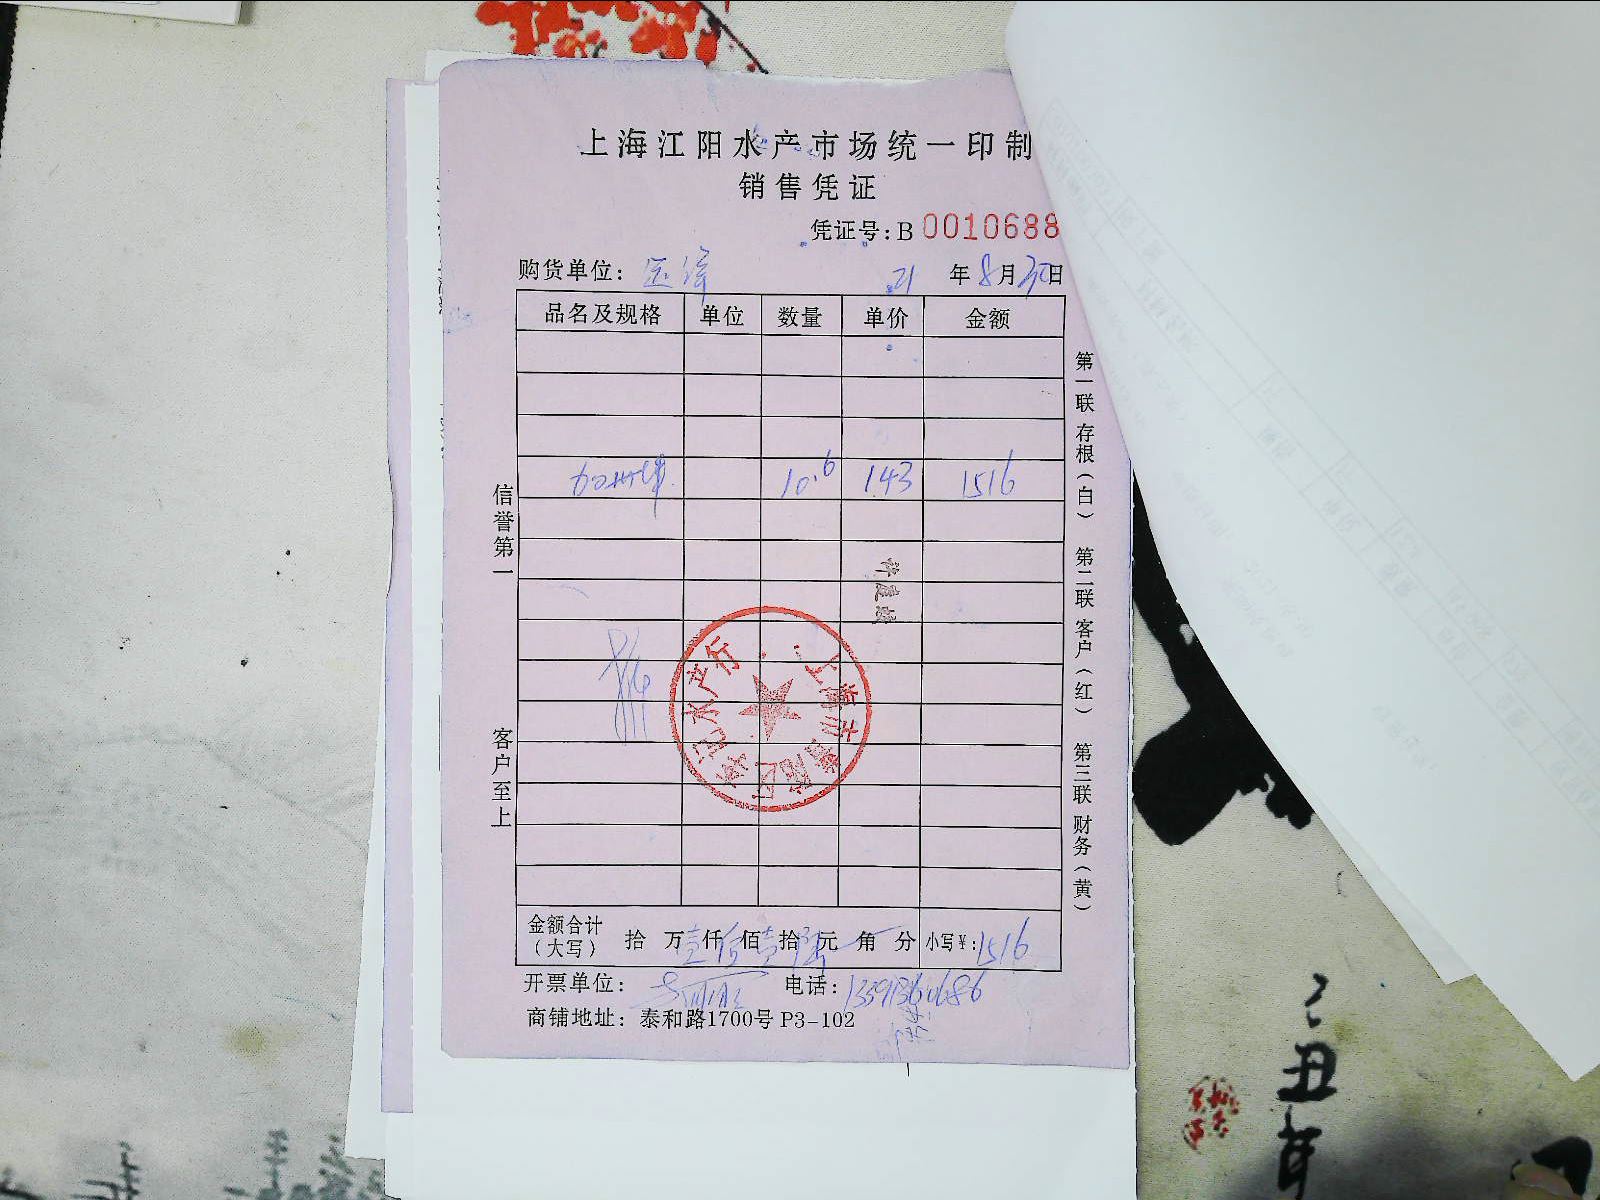 上海江阳水产市场统一印制
销售凭证
凭证号:B 0010688
购货单位: 21 年 8 月 30 日
品名及规格 单位 数量 单价 金额
加州 10.6 143 1516
信誉第一
客户至上
第一联 存根(白) 第二联 客户(红) 第三联 财务(黄)
上海市 区 水产行
金额合计(大写) 拾 万 壹 仟 伍 佰 壹 拾 陆 元 角 分 小写¥: 1516
开票单位: 电话: 13591360686
商铺地址: 泰和路1700号 P3-102
丑年